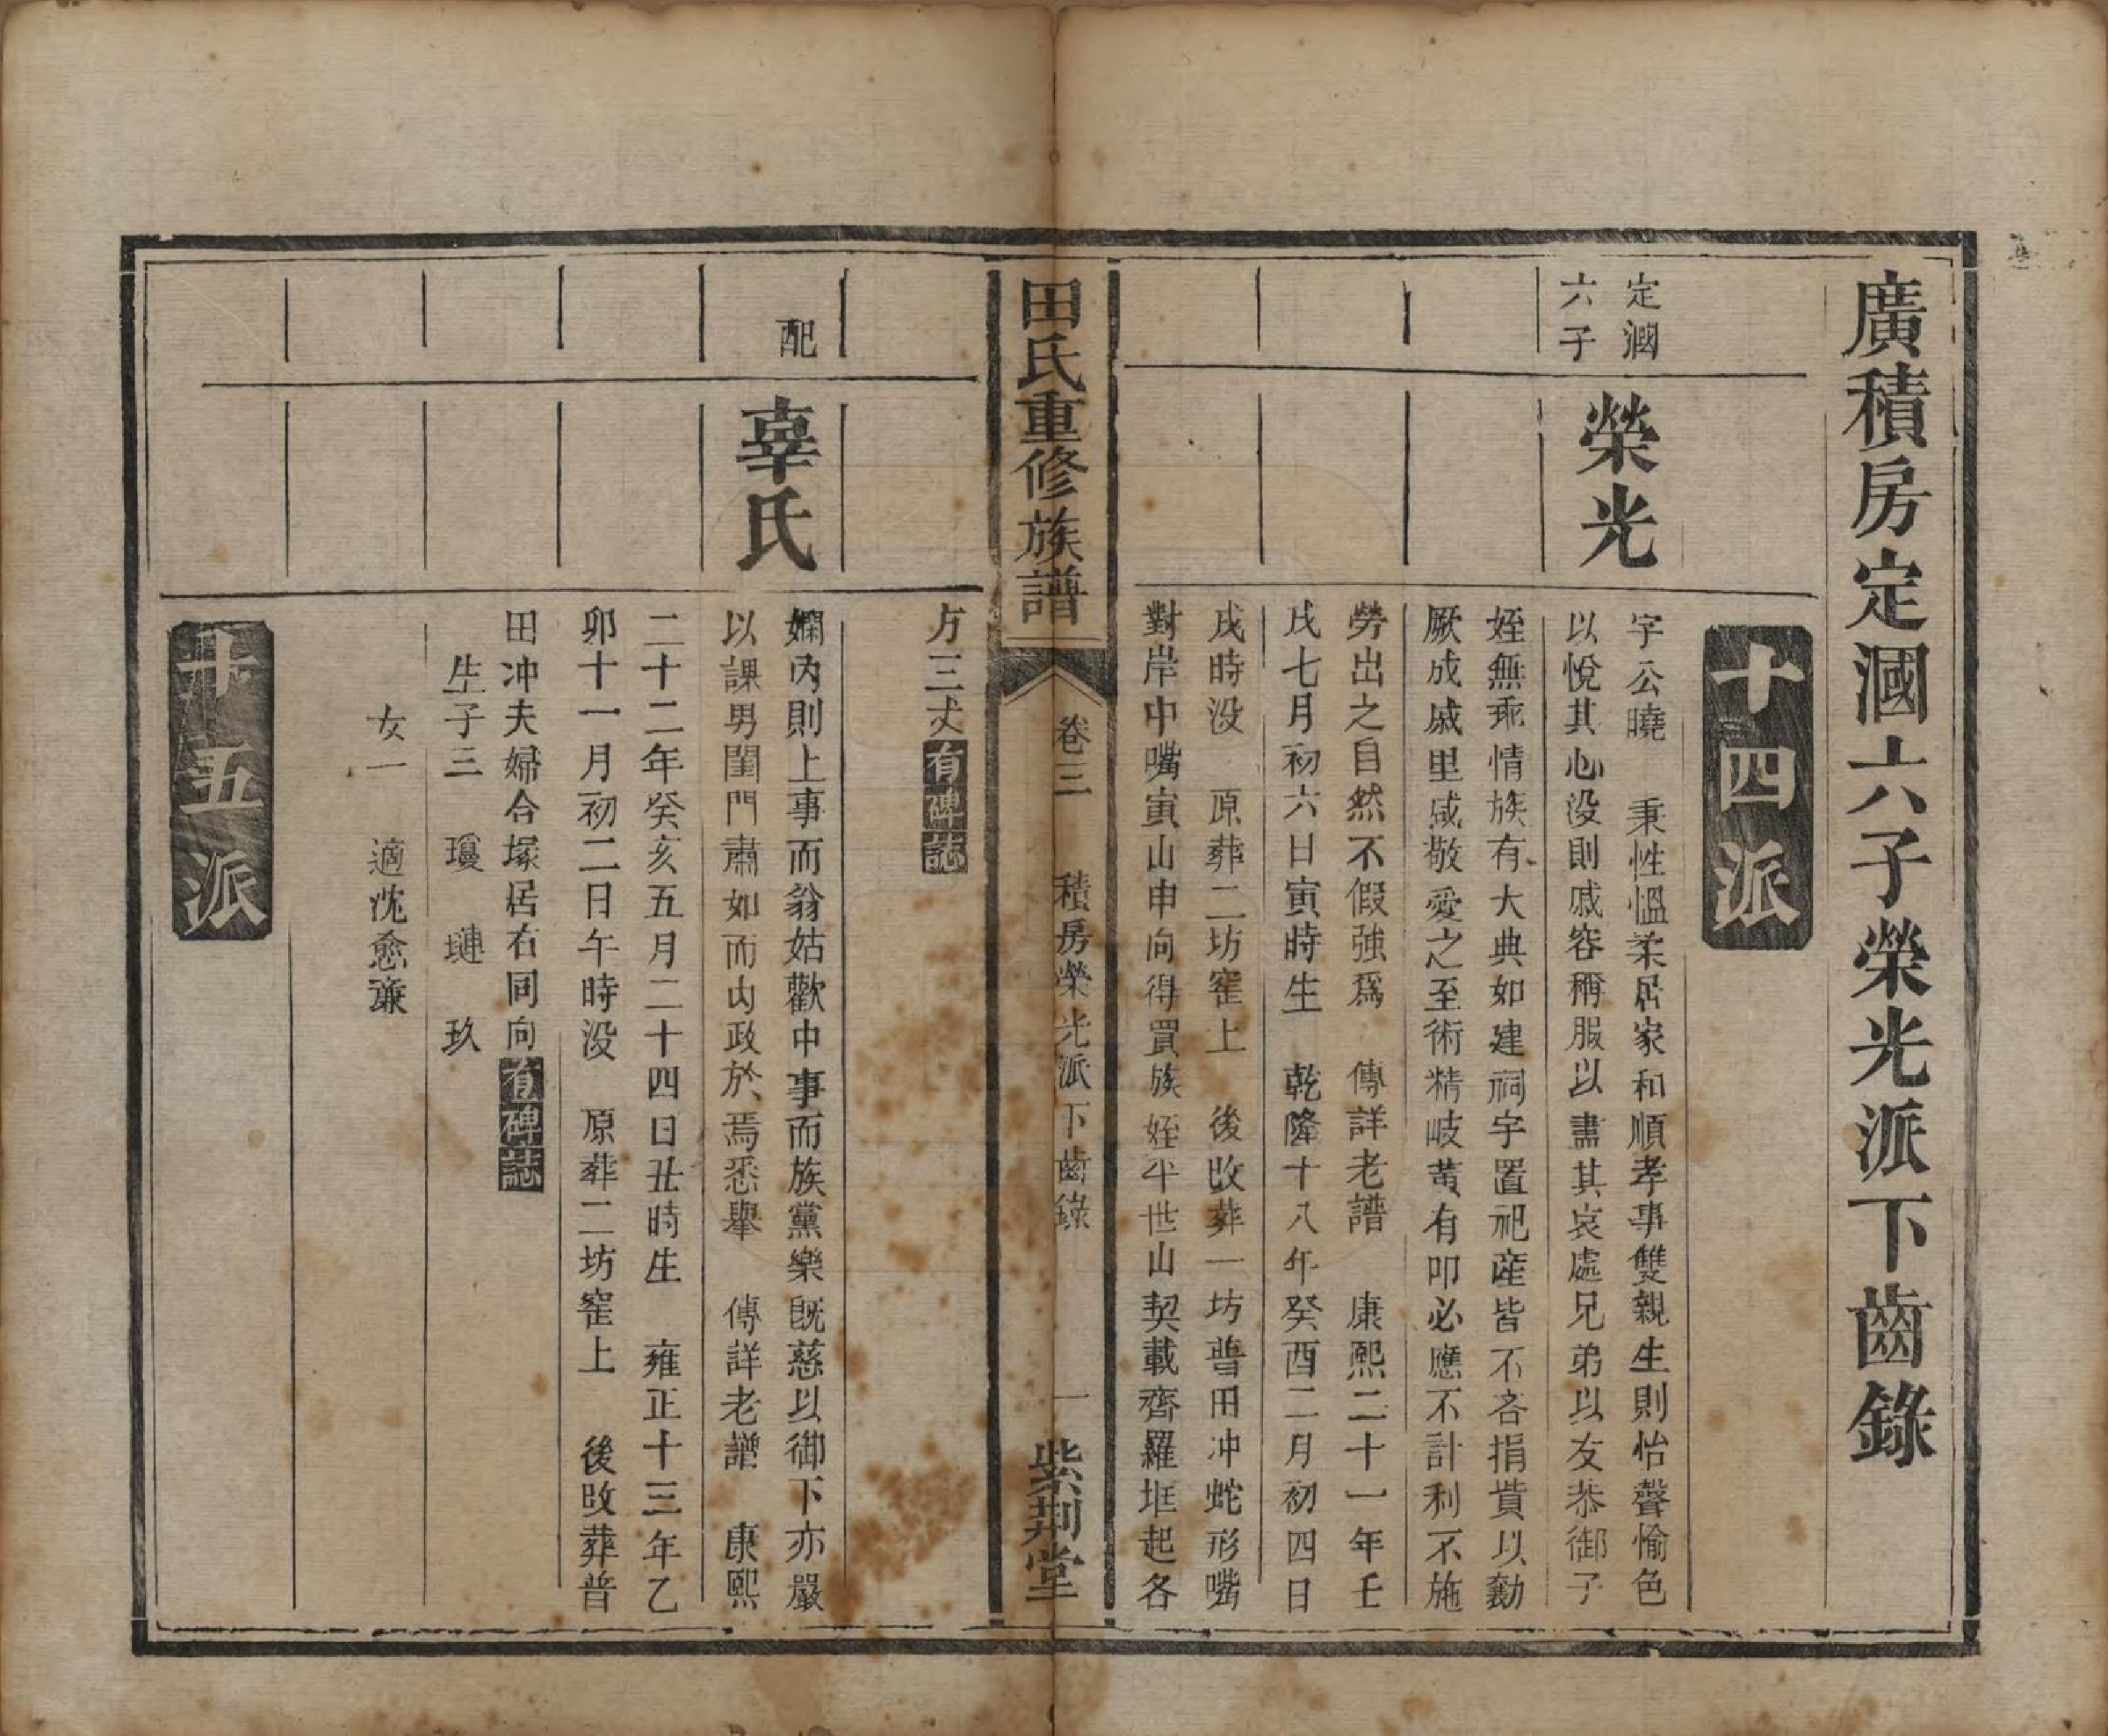 廣積房定漍六子榮光派下齒錄
十四派
定漍
六子
榮光
字公曉　秉性慍柔居家和順孝事雙親生則怡聲愉色
以悅其心没則戚容稱服以盡其哀處兄弟以友恭御子
姪無乖情族有大典如建祠宇置祀產皆不吝捐貲以勷
厥成戚里咸敬愛之至術精岐黃有叩必應不計利不施
勞出之自然不假強爲　傳詳老譜　康熙二十一年壬
戌七月初六日寅時生　乾隆十八年癸酉二月初四日
戌時没　原葬二坊窰上　後改葬一坊普田冲蛇形嘴
對岸中嘴寅山申向得買族姪半世山契載齊羅圫起各
田氏重修族譜
卷三　積房榮光派下齒錄　一
紫荆堂
方三丈有碑誌
配
辜氏
嫻內則上事而翁姑歡中事而族黨樂既慈以御下亦嚴
以課男閨門肅如而內政於焉悉舉　傳詳老譜　康熙
二十二年癸亥五月二十四日丑時生　雍正十三年乙
卯十一月初二日午時没　原葬二坊窰上　後改葬普
田冲夫婦合塚居右同向有碑誌
生子三　瓊　璉　玖
女一　適沈愈濂
十五派